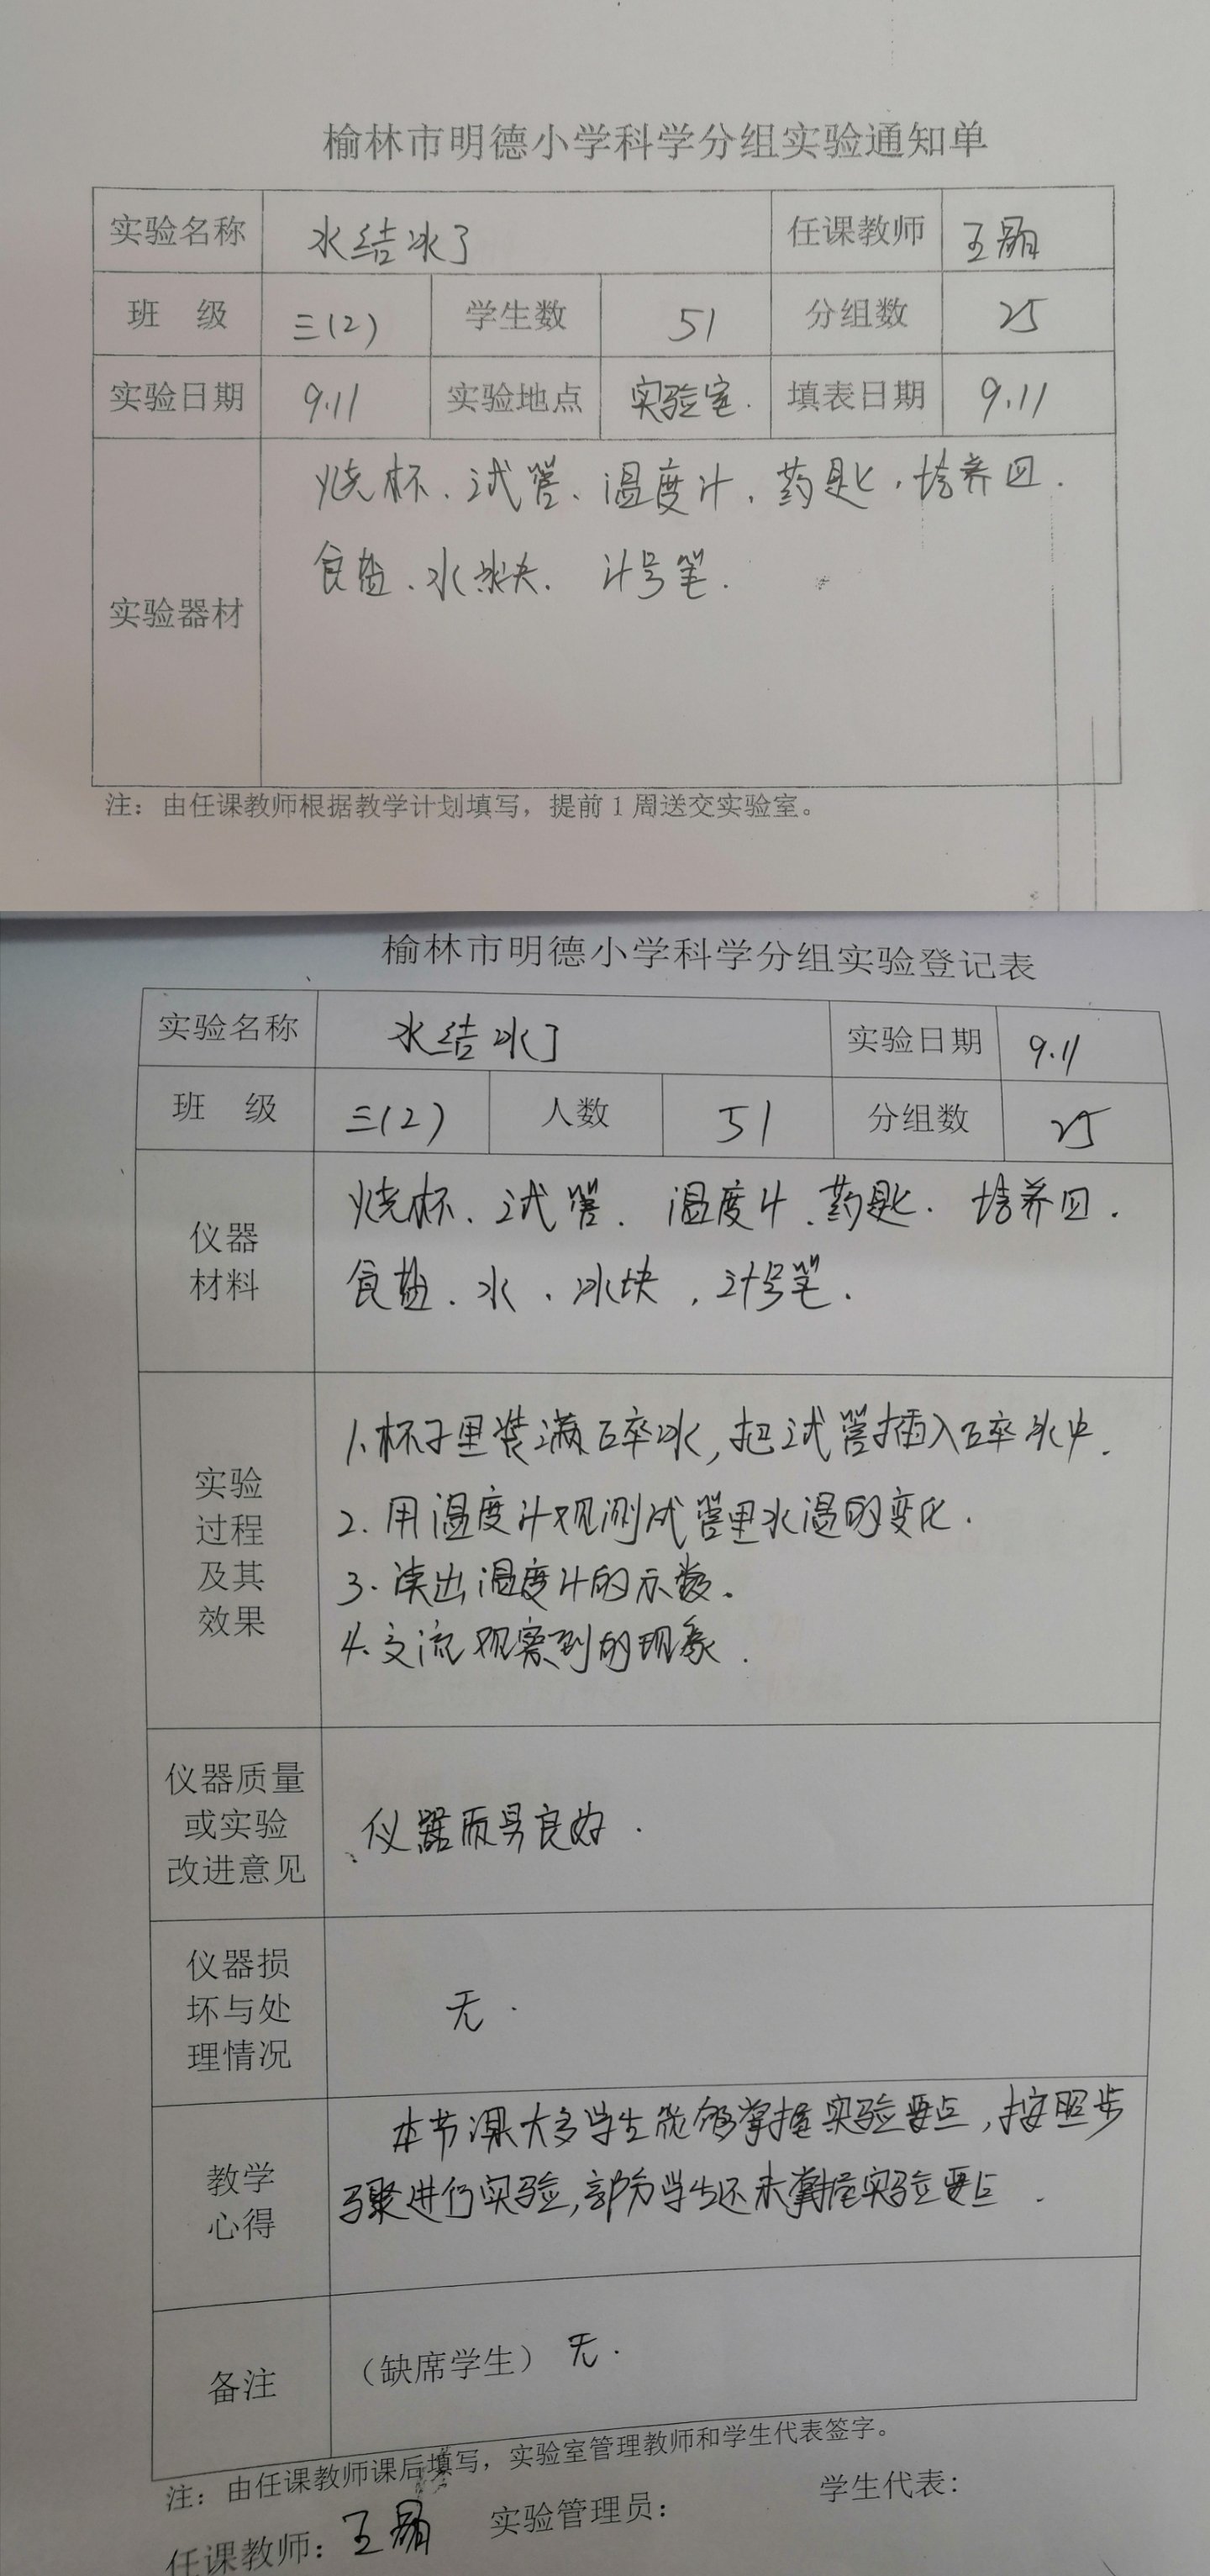 榆林市明德小学科学分组实验通知单
实验名称 水结冰了 任课教师 王
班 级 三(2) 学生数 51 分组数 25
实验日期 9.11 实验地点 实验室. 填表日期 9.11
实验器材
烧杯、试管、温度计、药匙、培养皿.
食盐、水、冰块、计号笔.
注：由任课教师根据教学计划填写，提前1周送交实验室。
榆林市明德小学科学分组实验登记表
实验名称 水结冰了 实验日期 9.11
班 级 三(2) 人数 51 分组数 25
仪器
材料
烧杯、试管、温度计、药匙、培养皿.
食盐、水、冰块、计号笔.
实验
过程
及其
效果
1.杯子里装满碎冰,把试管插入碎冰中.
2.用温度计观测试管里水温的变化.
3.读出温度计的示数.
4.交流观察到的现象.
仪器质量
或实验
改进意见
仪器质量良好.
仪器损
坏与处
理情况
无.
教学
心得
本节课大多学生能够掌握实验要点,按照步
骤进行实验,部分学生还未掌握实验要点.
备注
（缺席学生）无.
注：由任课教师课后填写，实验室管理教师和学生代表签字。
任课教师：王 实验管理员： 学生代表：